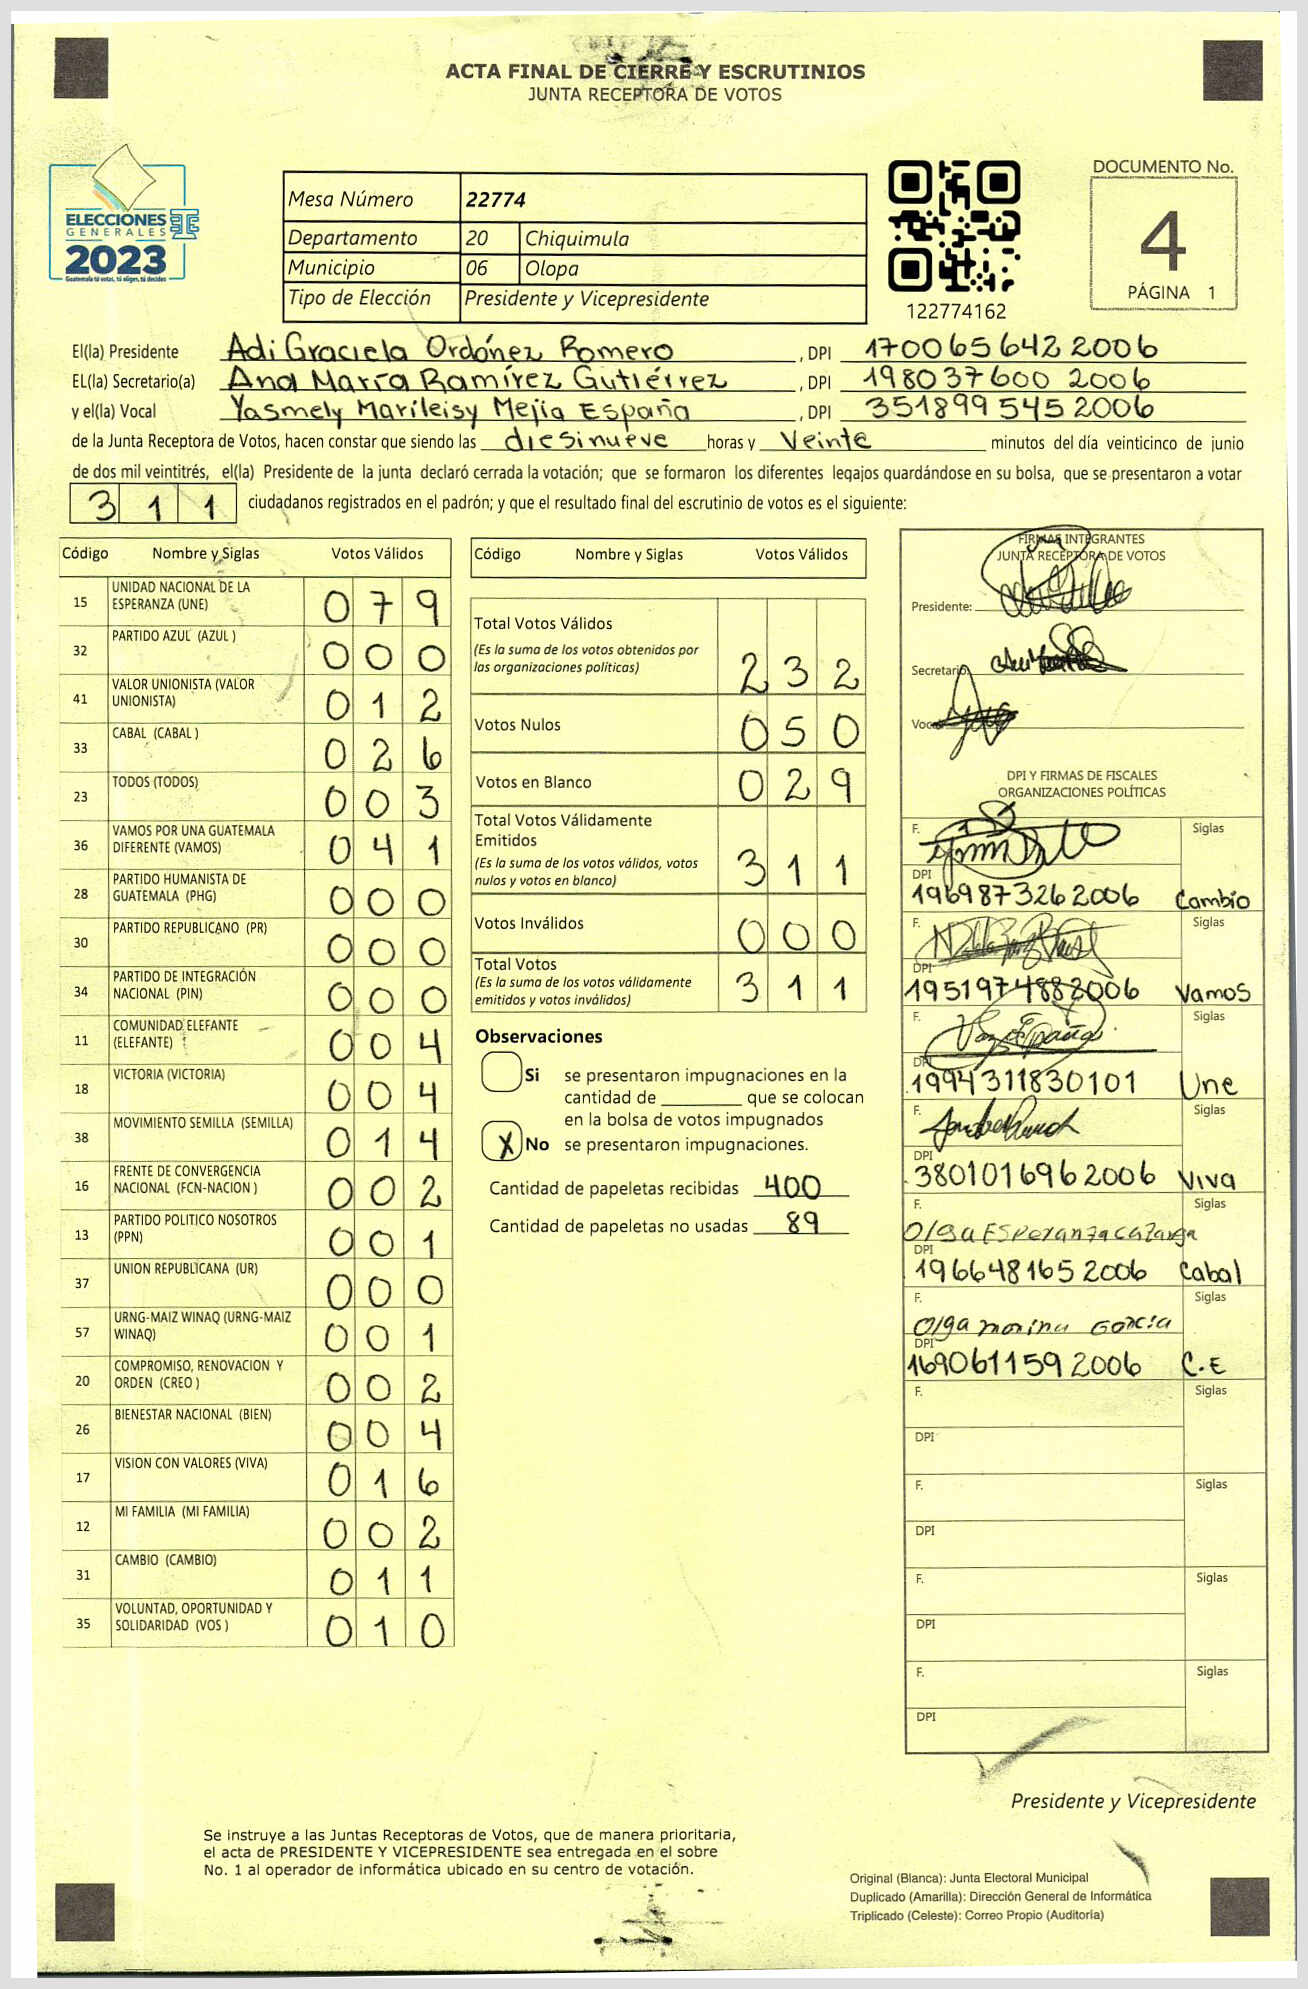 ACTA FINAL DE CIERRE Y ESCRUTINIOS
JUNTA RECEPTORA DE VOTOS
ELECCIONES
GENERALES
2023
Guatemala tú votas, tú eliges, tú decides
Mesa Número 22774
Departamento 20 Chiquimula
Municipio 06 Olopa
Tipo de Elección Presidente y Vicepresidente
122774162
DOCUMENTO No.
4
PÁGINA 1
El(la) Presidente Adi Graciela Ordónez Romero , DPI 170065642 2006
EL(la) Secretario(a) Ana María Ramírez Gutiérrez , DPI 198037600 2006
y el(la) Vocal Yasmely Marileisy Mejia España , DPI 351899545 2006
de la Junta Receptora de Votos, hacen constar que siendo las diesinueve horas y veinte minutos del día veinticinco de junio
de dos mil veintitrés, el(la) Presidente de la junta declaró cerrada la votación; que se formaron los diferentes legajos guardándose en su bolsa, que se presentaron a votar
311 ciudadanos registrados en el padrón; y que el resultado final del escrutinio de votos es el siguiente:
Código Nombre y Siglas Votos Válidos
15 UNIDAD NACIONAL DE LA ESPERANZA (UNE) 079
32 PARTIDO AZUL (AZUL ) 000
41 VALOR UNIONISTA (VALOR UNIONISTA) 012
33 CABAL (CABAL ) 026
23 TODOS (TODOS) 003
36 VAMOS POR UNA GUATEMALA DIFERENTE (VAMOS) 041
28 PARTIDO HUMANISTA DE GUATEMALA (PHG) 000
30 PARTIDO REPUBLICANO (PR) 000
34 PARTIDO DE INTEGRACIÓN NACIONAL (PIN) 000
11 COMUNIDAD ELEFANTE (ELEFANTE) 004
18 VICTORIA (VICTORIA) 004
38 MOVIMIENTO SEMILLA (SEMILLA) 014
16 FRENTE DE CONVERGENCIA NACIONAL (FCN-NACION ) 002
13 PARTIDO POLITICO NOSOTROS (PPN) 001
37 UNION REPUBLICANA (UR) 000
57 URNG-MAIZ WINAQ (URNG-MAIZ WINAQ) 001
20 COMPROMISO, RENOVACION Y ORDEN (CREO ) 002
26 BIENESTAR NACIONAL (BIEN) 004
17 VISION CON VALORES (VIVA) 016
12 MI FAMILIA (MI FAMILIA) 002
31 CAMBIO (CAMBIO) 011
35 VOLUNTAD, OPORTUNIDAD Y SOLIDARIDAD (VOS ) 010
Código Nombre y Siglas Votos Válidos
Total Votos Válidos
(Es la suma de los votos obtenidos por
las organizaciones políticas) 232
Votos Nulos 050
Votos en Blanco 029
Total Votos Válidamente
Emitidos
(Es la suma de los votos válidos, votos
nulos y votos en blanco) 311
Votos Inválidos 000
Total Votos
(Es la suma de los votos válidamente
emitidos y votos inválidos) 311
Observaciones
Si se presentaron impugnaciones en la
cantidad de ________ que se colocan
en la bolsa de votos impugnados
X No se presentaron impugnaciones.
Cantidad de papeletas recibidas 400
Cantidad de papeletas no usadas 89
FIRMAS INTEGRANTES
JUNTA RECEPTORA DE VOTOS
Presidente:
Secretario
Vocal
DPI Y FIRMAS DE FISCALES
ORGANIZACIONES POLÍTICAS
F. Siglas
DPI
1969873262006 Cambio
F. Siglas
DPI
1951974882006 Vamos
F. Siglas
DPI
1994311830101 Une
F. Siglas
DPI
3801016962006 Viva
F. Siglas
Olga Esperanza
DPI
1966481652006 Cabal
F. Siglas
Olga marina García
DPI
1690611592006 C.E
F. Siglas
DPI
F. Siglas
DPI
F. Siglas
DPI
F. Siglas
DPI
Presidente y Vicepresidente
Se instruye a las Juntas Receptoras de Votos, que de manera prioritaria,
el acta de PRESIDENTE Y VICEPRESIDENTE sea entregada en el sobre
No. 1 al operador de informática ubicado en su centro de votación.
Original (Blanca): Junta Electoral Municipal
Duplicado (Amarilla): Dirección General de Informática
Triplicado (Celeste): Correo Propio (Auditoría)